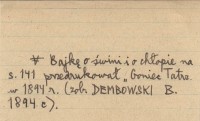 * Bajkę o świni i o chłopie na
s. 141 przedrukował „Goniec Tatrz.
w 1894 r. (zob. DEMBOWSKI B.
1894 c).